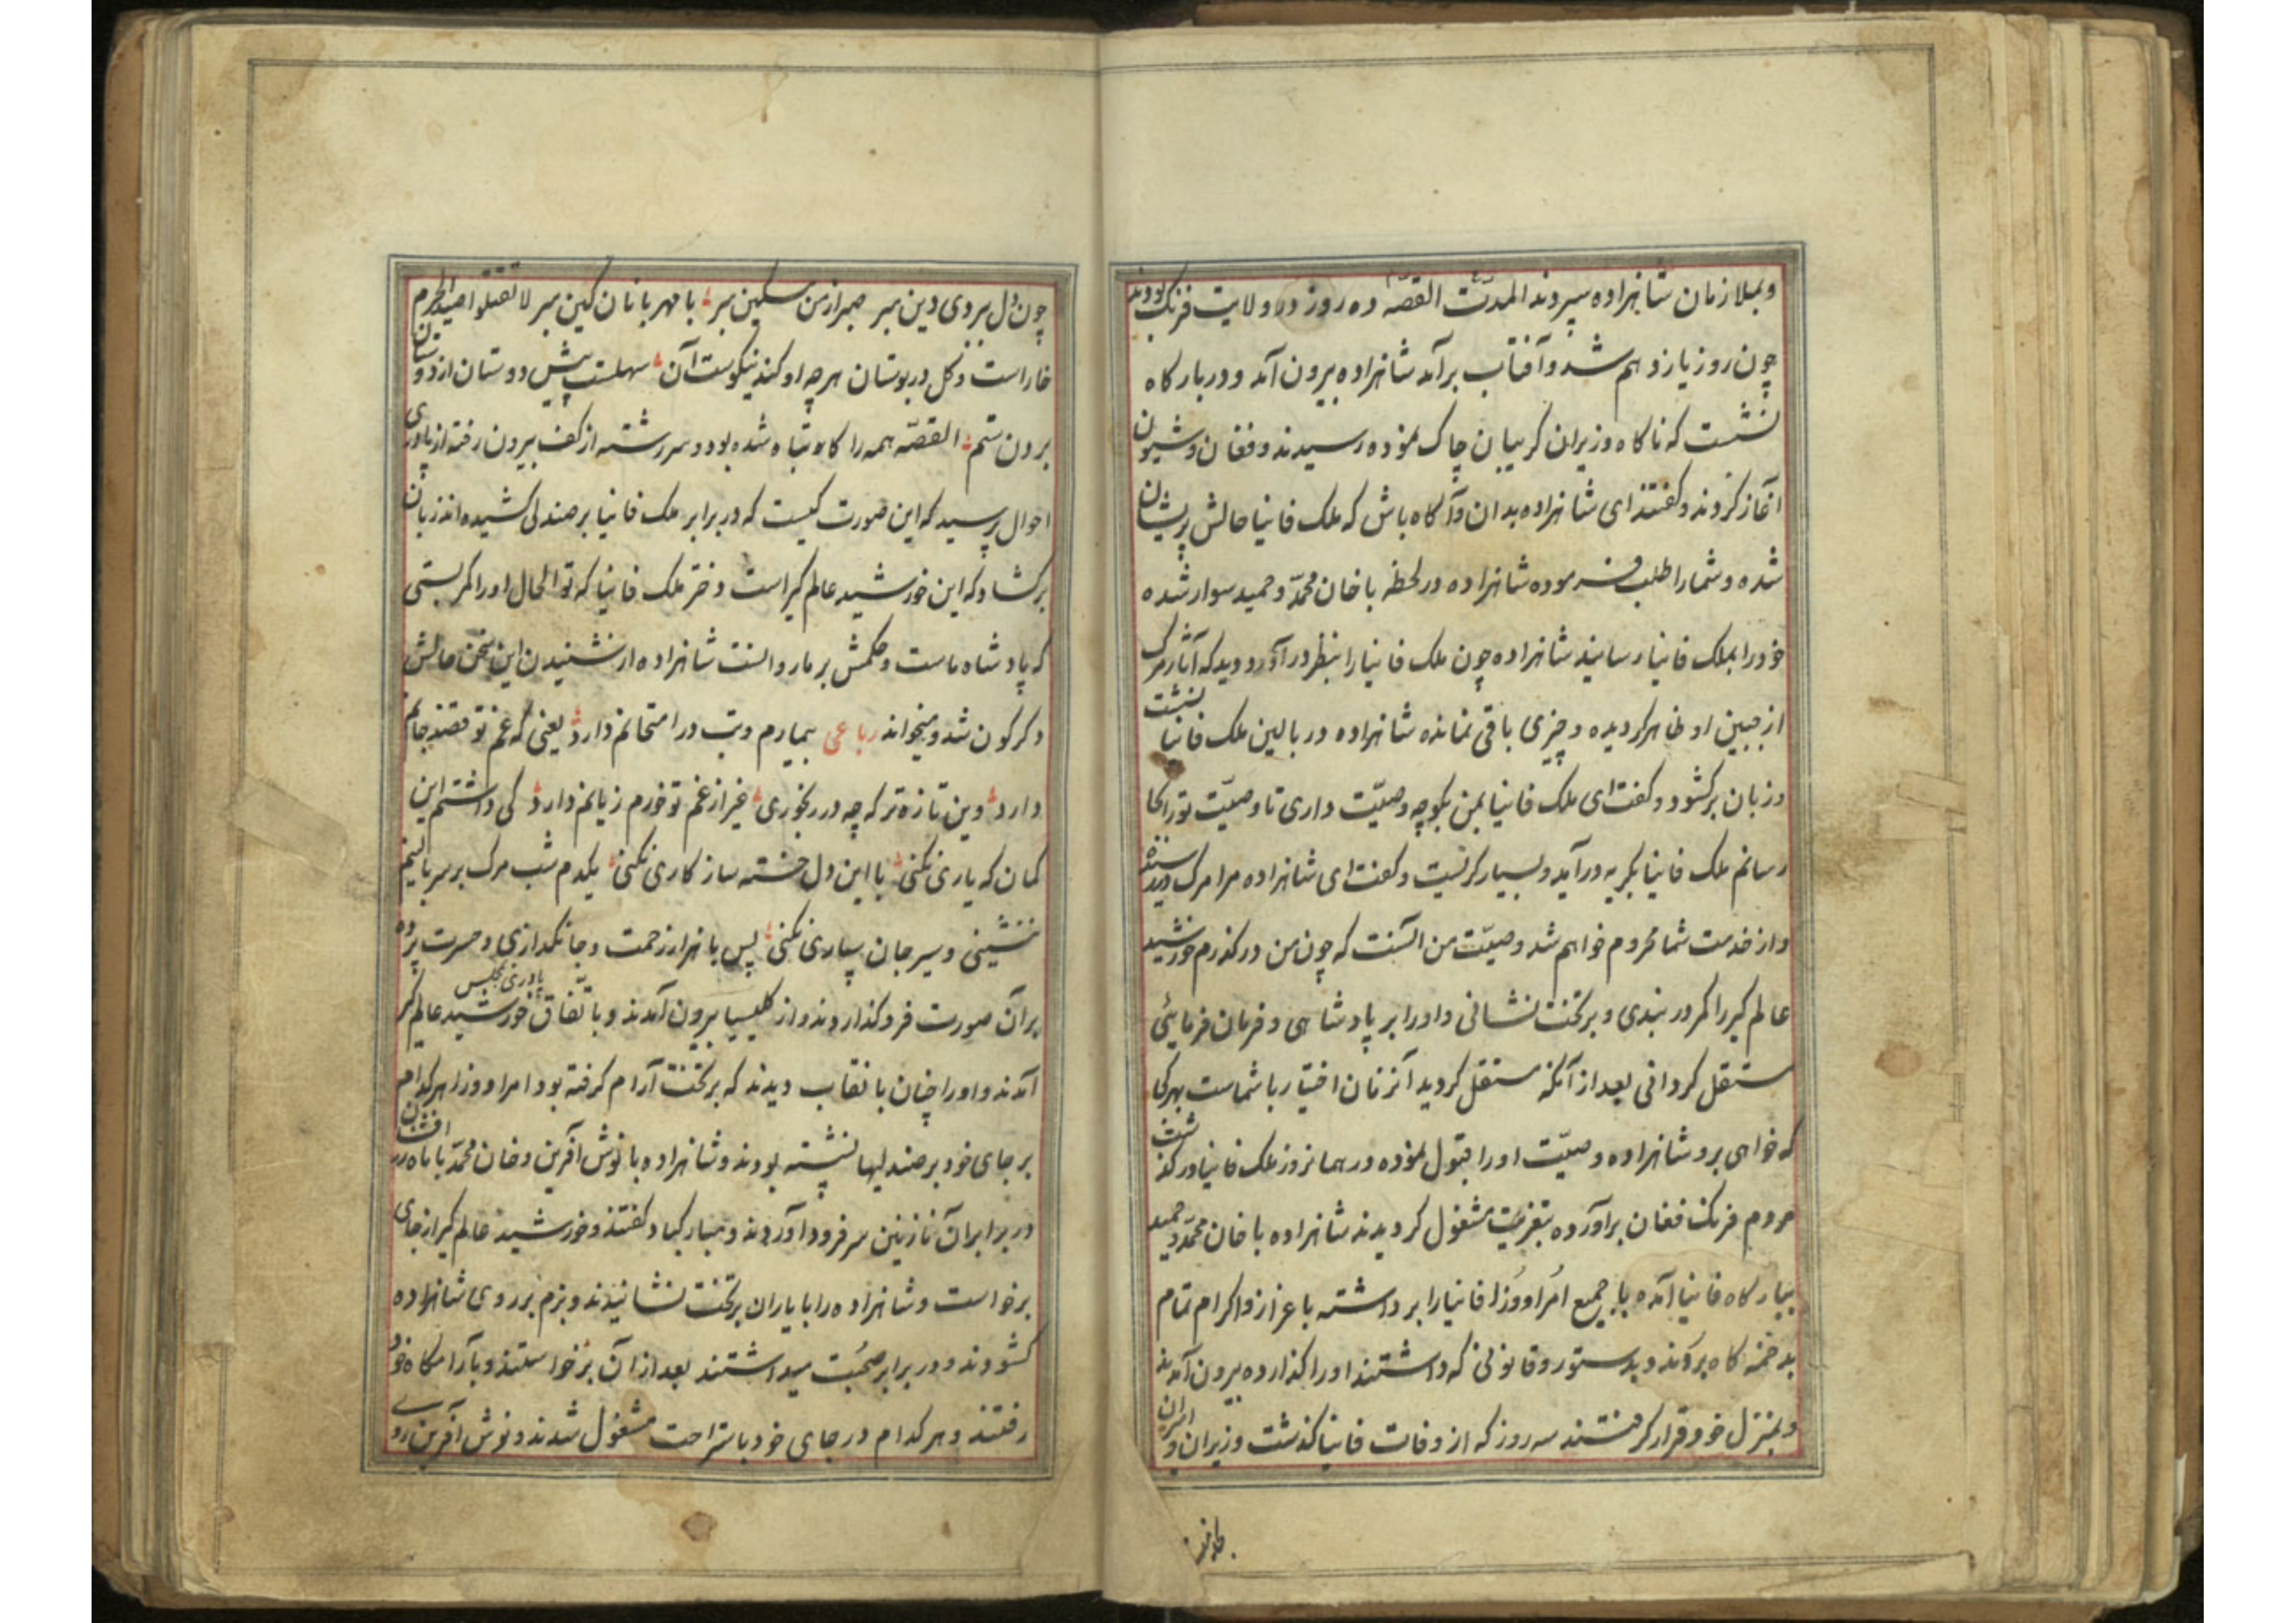 وبملازمان شاهزاده سپردند القصّه ده روز در ولایت فرنک بودند
چون روز یازدهم شد و آفتاب برآمد شاهزاده بیرون آمد و در بارکاه
نشست که ناکاه وزیران کریبان چاک نموده رسیدند و فغان و شیون
آغاز کردند و کفتند ای شاهزاده بدان و آکاه باش که ملک فانیا حالش پریشان
شده و شما را طلب فرموده شاهزاده در لحظه با خان محمّد و حمید سوار شده
خود را بملک فانیا رسانید شاهزاده چون ملک فانیا را بنظر درآورد دید که آثار مرک
از جبین او ظاهر کردیده و چیزی باقی نمانده شاهزاده در بالین ملک فانیا نشست
و زبان برکشود و کفت ای ملک فانیا بمن بکو چه وصیّت داری تا وصیّت تو را بجا
رسانم ملک فانیا بکریه درآمد و بسیار کریست و کفت ای شاهزاده مرا مرک رسیده
و از خدمت شما محروم خواهم شد وصیّت من آنست که چون من درکذرم خورشید
عالم کیر را کمر در بندی و بر تخت نشانی و او را بر پادشاهی و فرمان فرمائی
مستقل کردانی بعد از آنکه مستقل کردید آنزمان اختیار با شماست بهر کجا
که خواهی برو شاهزاده وصیّت او را قبول نموده در همانروز ملک فانیا درکذشت
مردم فرنک فغان برآورده بتعزیت مشغول کردیدند شاهزاده با خان محمّد و حمید
ببارکاه فانیا آمده با جمیع امرا و وزرا فانیا را برداشته با عزاز و اکرام تمام
بدخمه کاه بردند و بدستور و قانونی که داشتند او را کذارده بیرون آمدند
و بمنزل خود قرار کرفتند سه روز که از وفات فانیا کذشت وزیران و امیران
چون دل بردی دین مبر صبر از من مسکین مبر با مهربانان کین مبر لا تقتلوا صید الحرم
خار است و کل در بوستان هرچه او کند نیکوست آن سهلست پیش دوستان از دوستان
بردن ستم القصّه همه را کار تباه شده بود و سررشته از کف بیرون رفته از پادری
احوال پرسید که این صورت کیست که در برابر ملک فانیا بر صندلی کشیده‌اند زبان
برکشاد که این خورشید عالم کیر است دختر ملک فانیا که تو الحال او را کمر بستی
که پادشاه ماست و حکمش بر ما روانست شاهزاده از شنیدن این سخن حالش
دکرکون شد و میخواند رباعی بیمارم و تب در امتحانم دارد یعنی که غم تو قصد جانم
دارد وین تازه‌تر که چه در رنجوری غیر از غم تو خورم زیانم دارد کی داشتم این
کمان که یاری نکنی با این دل خسته سازکاری نکنی یکدم شب مرک بر سر بالینم
ننشینی و سیر جان سپاری نکنی پس با هزار زحمت و جانکدازی و حسرت پرده
بر آن صورت فروکذاردند و از کلیسیا بیرون آمدند و باتّفاق پادری بمجلس خورشید عالم کیر
آمدند و او را چنان با نقاب دیدند که بر تخت آرام کرفته بود امرا و وزرا هر کدام
بر جای خود بر صندلیها نشسته بودند و شاهزاده با نوش آفرین و خان محمّد با ماه زر افشان
در برابر آن نازنین سر فرود آوردند و مبارکباد کفتند و خورشید عالم کیر از جای
برخواست و شاهزاده را با یاران بر تخت نشانیدند و بزم بر روی شاهزاده
کشودند و در برابر صحبت میداشتند بعد از آن برخواستند و بآرامکاه خود
رفتند و هر کدام در جای خود باستراحت مشغول شدند و نوش آفرین